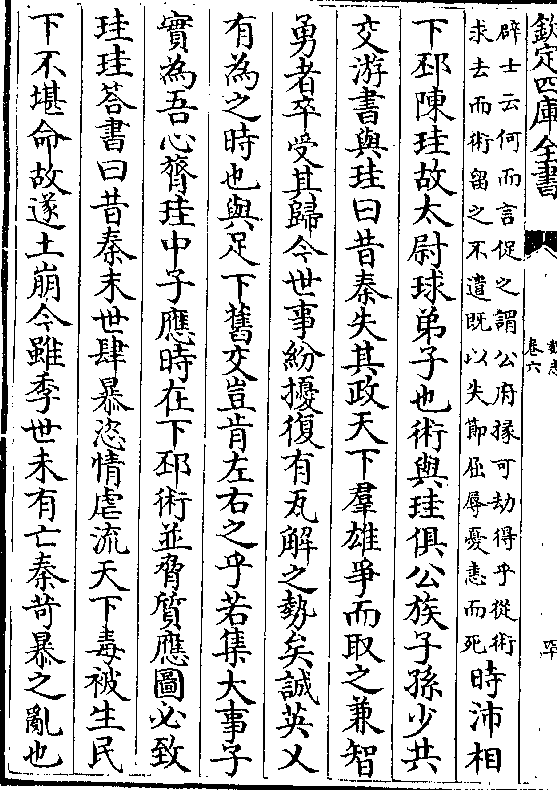 欽定四庫全書
卷六
辟士云何而言促之謂公府掾可劫得乎從術
求去而術留之不遣既以失節屈辱憂恚而死
時沛相
下邳陳珪故太尉球弟子也術與珪俱公族子孫少共
交游書與珪曰昔秦失其政天下羣雄爭而取之兼智
勇者卒受其歸今世事紛擾復有瓦解之勢矣誠英乂
有為之時也與足下舊交豈肯左右之乎若集大事子
實為吾心膂珪中子應時在下邳術並脅質應圖必致
珪珪荅書曰昔秦末世肆暴恣情虐流天下毒被生民
下不堪命故遂土崩今雖季世未有亡秦苛暴之亂也